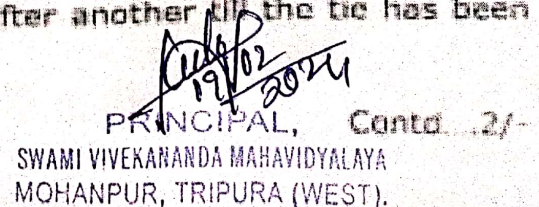 fter another till the tie has been
19/02
2024
PRINCIPAL, Contd...2/-
SWAMI VIVEKANANDA MAHAVIDYALAYA
MOHANPUR, TRIPURA (WEST).